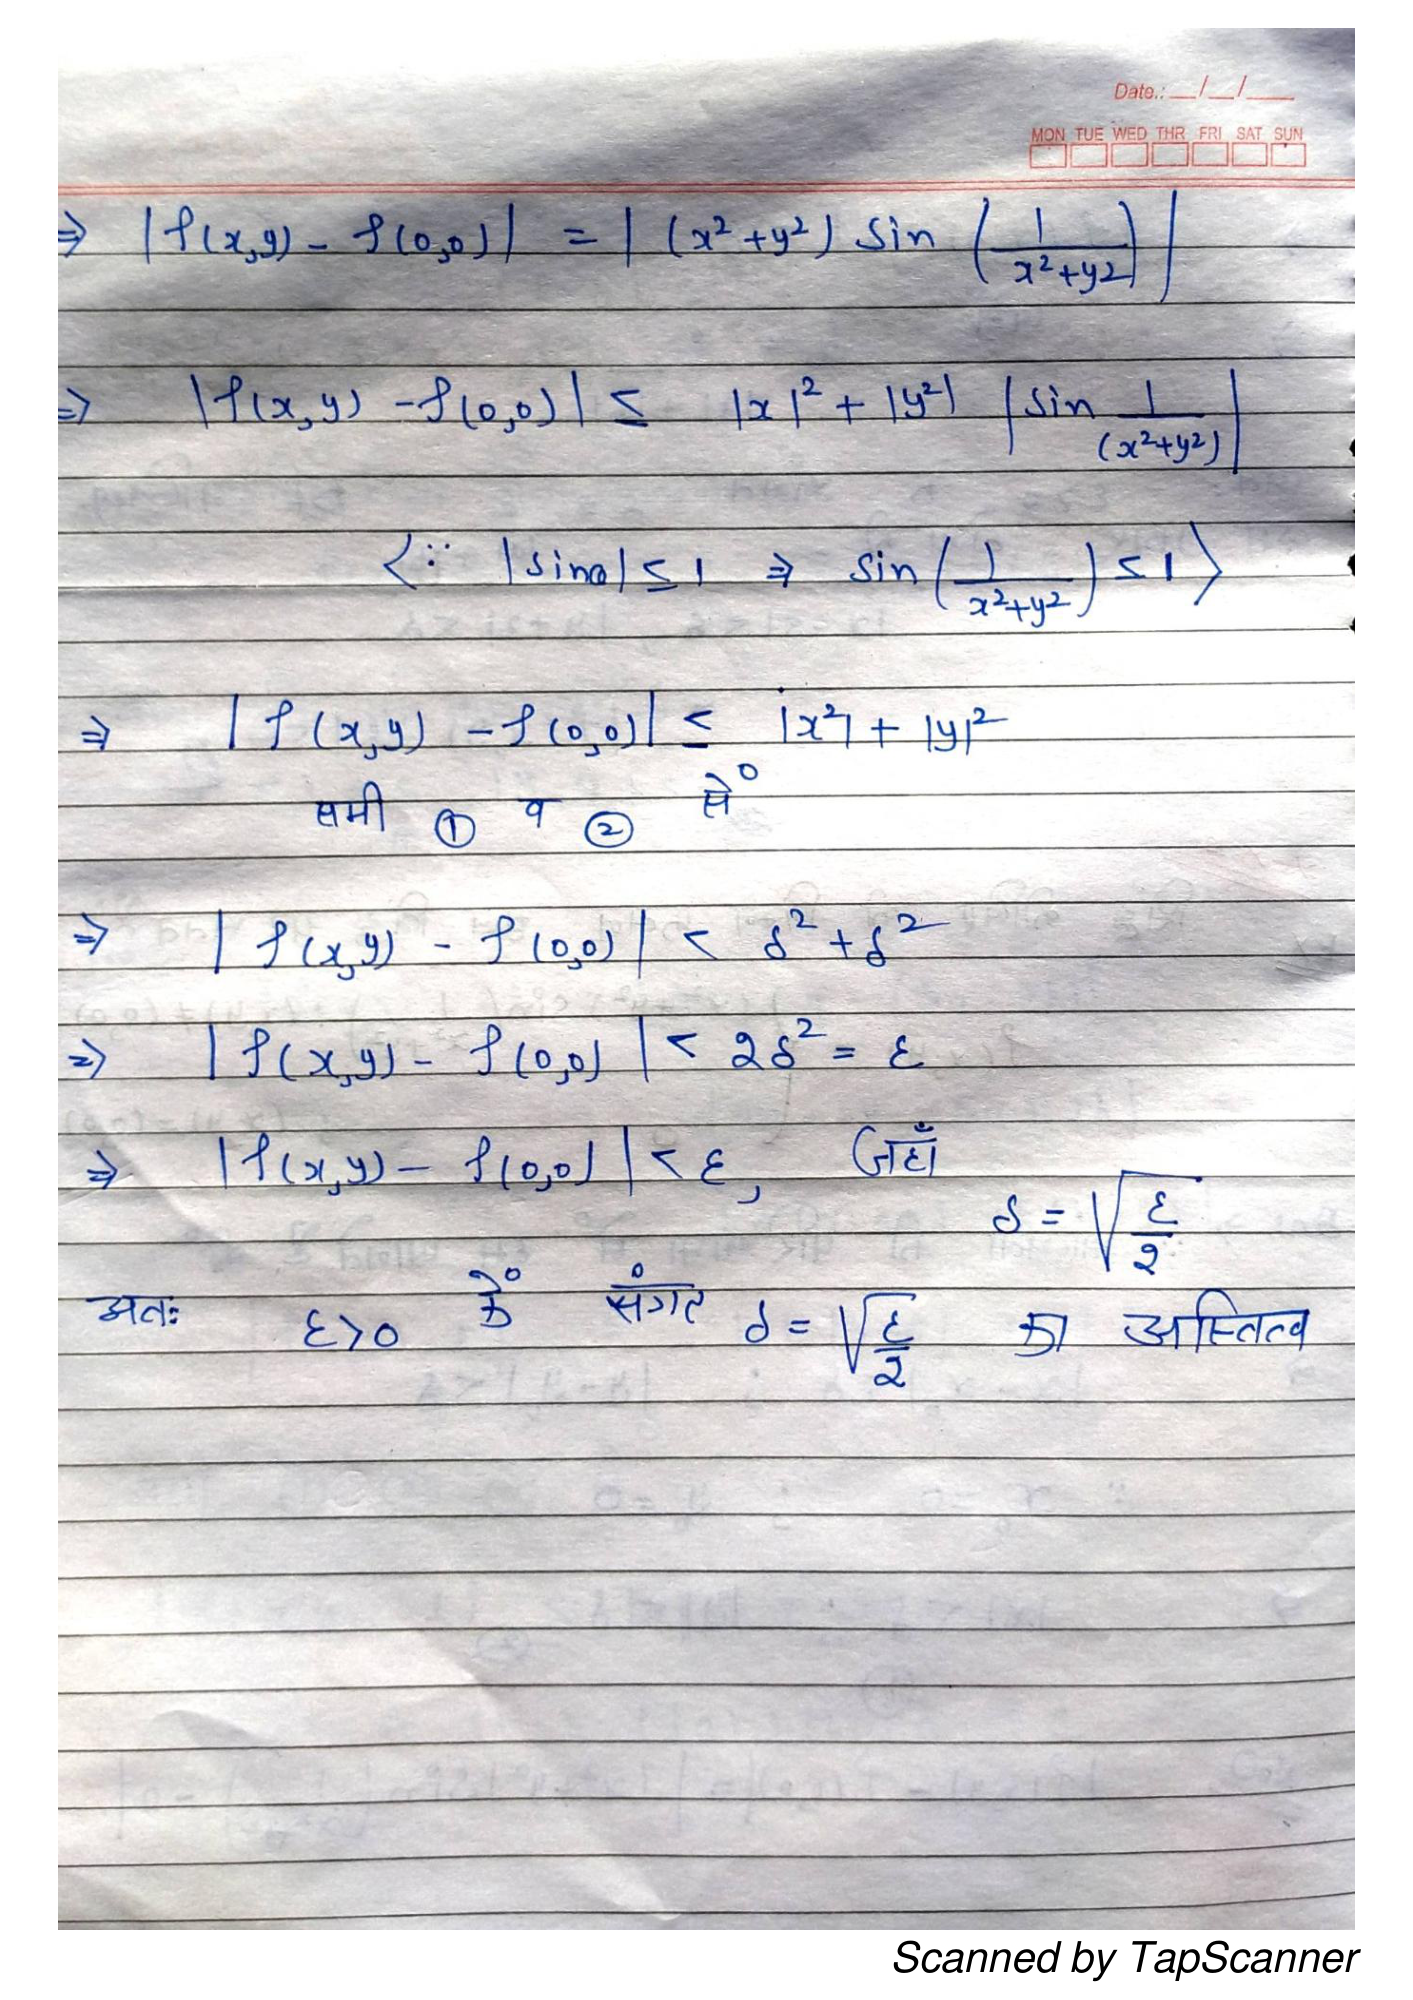 Date.: __/__/___
MON TUE WED THR FRI SAT SUN
⇒ |f(x,y) - f(0,0)| = |(x²+y²) sin (1/(x²+y²))|
⇒ |f(x,y) - f(0,0)| ≤ |x|² + |y²| |sin 1/(x²+y²)|
⟨∵ |sinθ| ≤ 1 ⇒ sin(1/(x²+y²)) ≤ 1⟩
⇒ |f(x,y) - f(0,0)| ≤ |x²| + |y|²
समी ① व ② से
⇒ |f(x,y) - f(0,0)| < δ² + δ²
⇒ |f(x,y) - f(0,0)| < 2δ² = ε
⇒ |f(x,y) - f(0,0)| < ε, जहाँ
δ = √(ε/2)
अतः ε>0 के संगत δ = √(ε/2) का अस्तित्व
Scanned by TapScanner